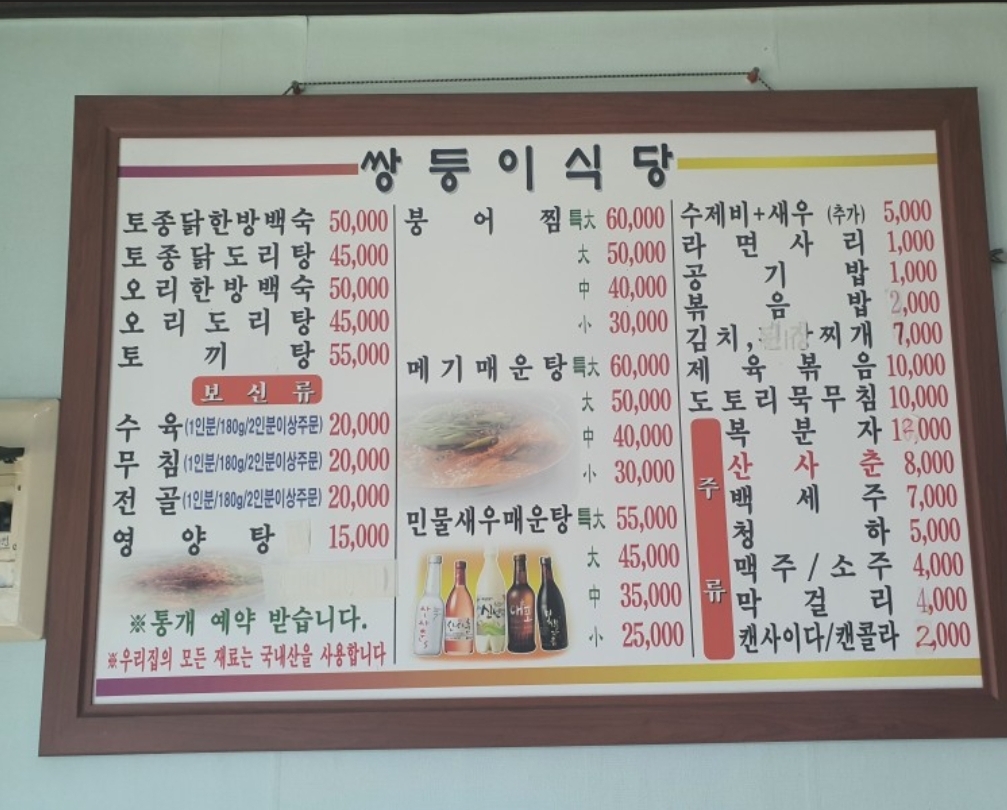 쌍둥이식당
토종닭한방백숙 50,000
토종닭도리탕 45,000
오리한방백숙 50,000
오리도리탕 45,000
토끼탕 55,000
보신류
수육(1인분/180g/2인분이상주문) 20,000
무침(1인분/180g/2인분이상주문) 20,000
전골(1인분/180g/2인분이상주문) 20,000
영양탕 15,000
※통개 예약 받습니다.
※우리집의 모든 재료는 국내산을 사용합니다
붕어찜 특大 60,000
大 50,000
中 40,000
小 30,000
메기매운탕 특大 60,000
大 50,000
中 40,000
小 30,000
민물새우매운탕 특大 55,000
大 45,000
中 35,000
小 25,000
수제비+새우 (추가) 5,000
라면사리 1,000
공기밥 1,000
볶음밥 2,000
김치, 된장찌개 7,000
제육볶음 10,000
도토리묵무침 10,000
주류
복분자
산사춘 8,000
백세주 7,000
청하 5,000
맥주/소주 4,000
막걸리 4,000
캔사이다/캔콜라 2,000